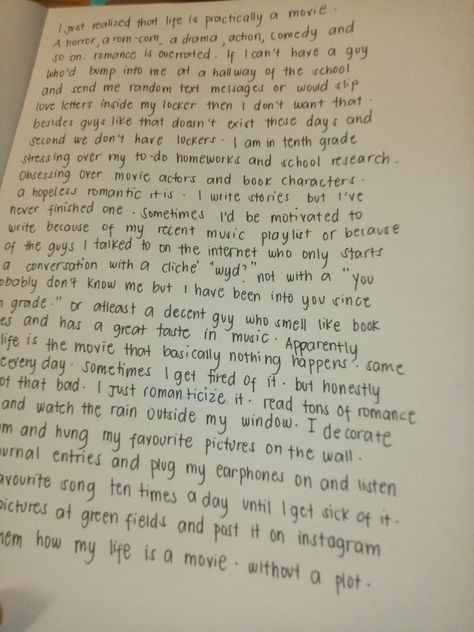 I just realized that life is practically a movie.
A horror, a rom-com, a drama, action, comedy and
so on. romance is overrated. If I can't have a guy
who'd bump into me at a hallway of the school
and send me random text messages or would slip
love letters inside my locker then I don't want that.
besides guys like that doesn't exist these days and
second we don't have lockers. I am in tenth grade
stressing over my to-do homeworks and school research.
Obsessing over movie actors and book characters.
a hopeless romantic it is. I write stories but I've
never finished one. Sometimes I'd be motivated to
write because of my recent music playlist or because
of the guys I talked to on the internet who only starts
a conversation with a cliché "wyd?" not with a "you
obably don't know me but I have been into you since
grade." or atleast a decent guy who smell like book
es and has a great taste in music. Apparently
life is the movie that basically nothing happens. same
every day. sometimes I get tired of it. but honestly
ot that bad. I just romanticize it. read tons of romance
and watch the rain outside my window. I decorate
m and hung my favourite pictures on the wall.
urnal entries and plug my earphones on and listen
avourite song ten times a day until I get sick of it.
pictures at green fields and post it on instagram
hem how my life is a movie. without a plot.